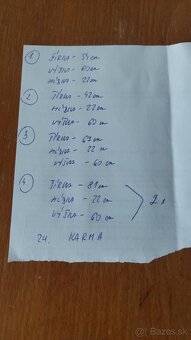 1
ŠÍRKA - 54 cm
VÝŠKA - 60 cm
HĹBKA - 22 cm
2
ŠÍRKA - 42 cm
HĹBKA - 22 cm
VÝŠKA - 60 cm
3
ŠÍRKA - 63 cm
HĹBKA - 22 cm
VÝŠKA - 60 cm
4
ŠÍRKA - 81 cm
HĹBKA - 22 cm
VÝŠKA - 60 cm
2x
24. KARMA
bazos.sk